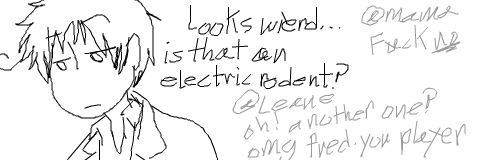 Looks wierd...
is that an
electric rodent?
@mama
Fuck no
@Leene
oh! another one?
omg fred. you player